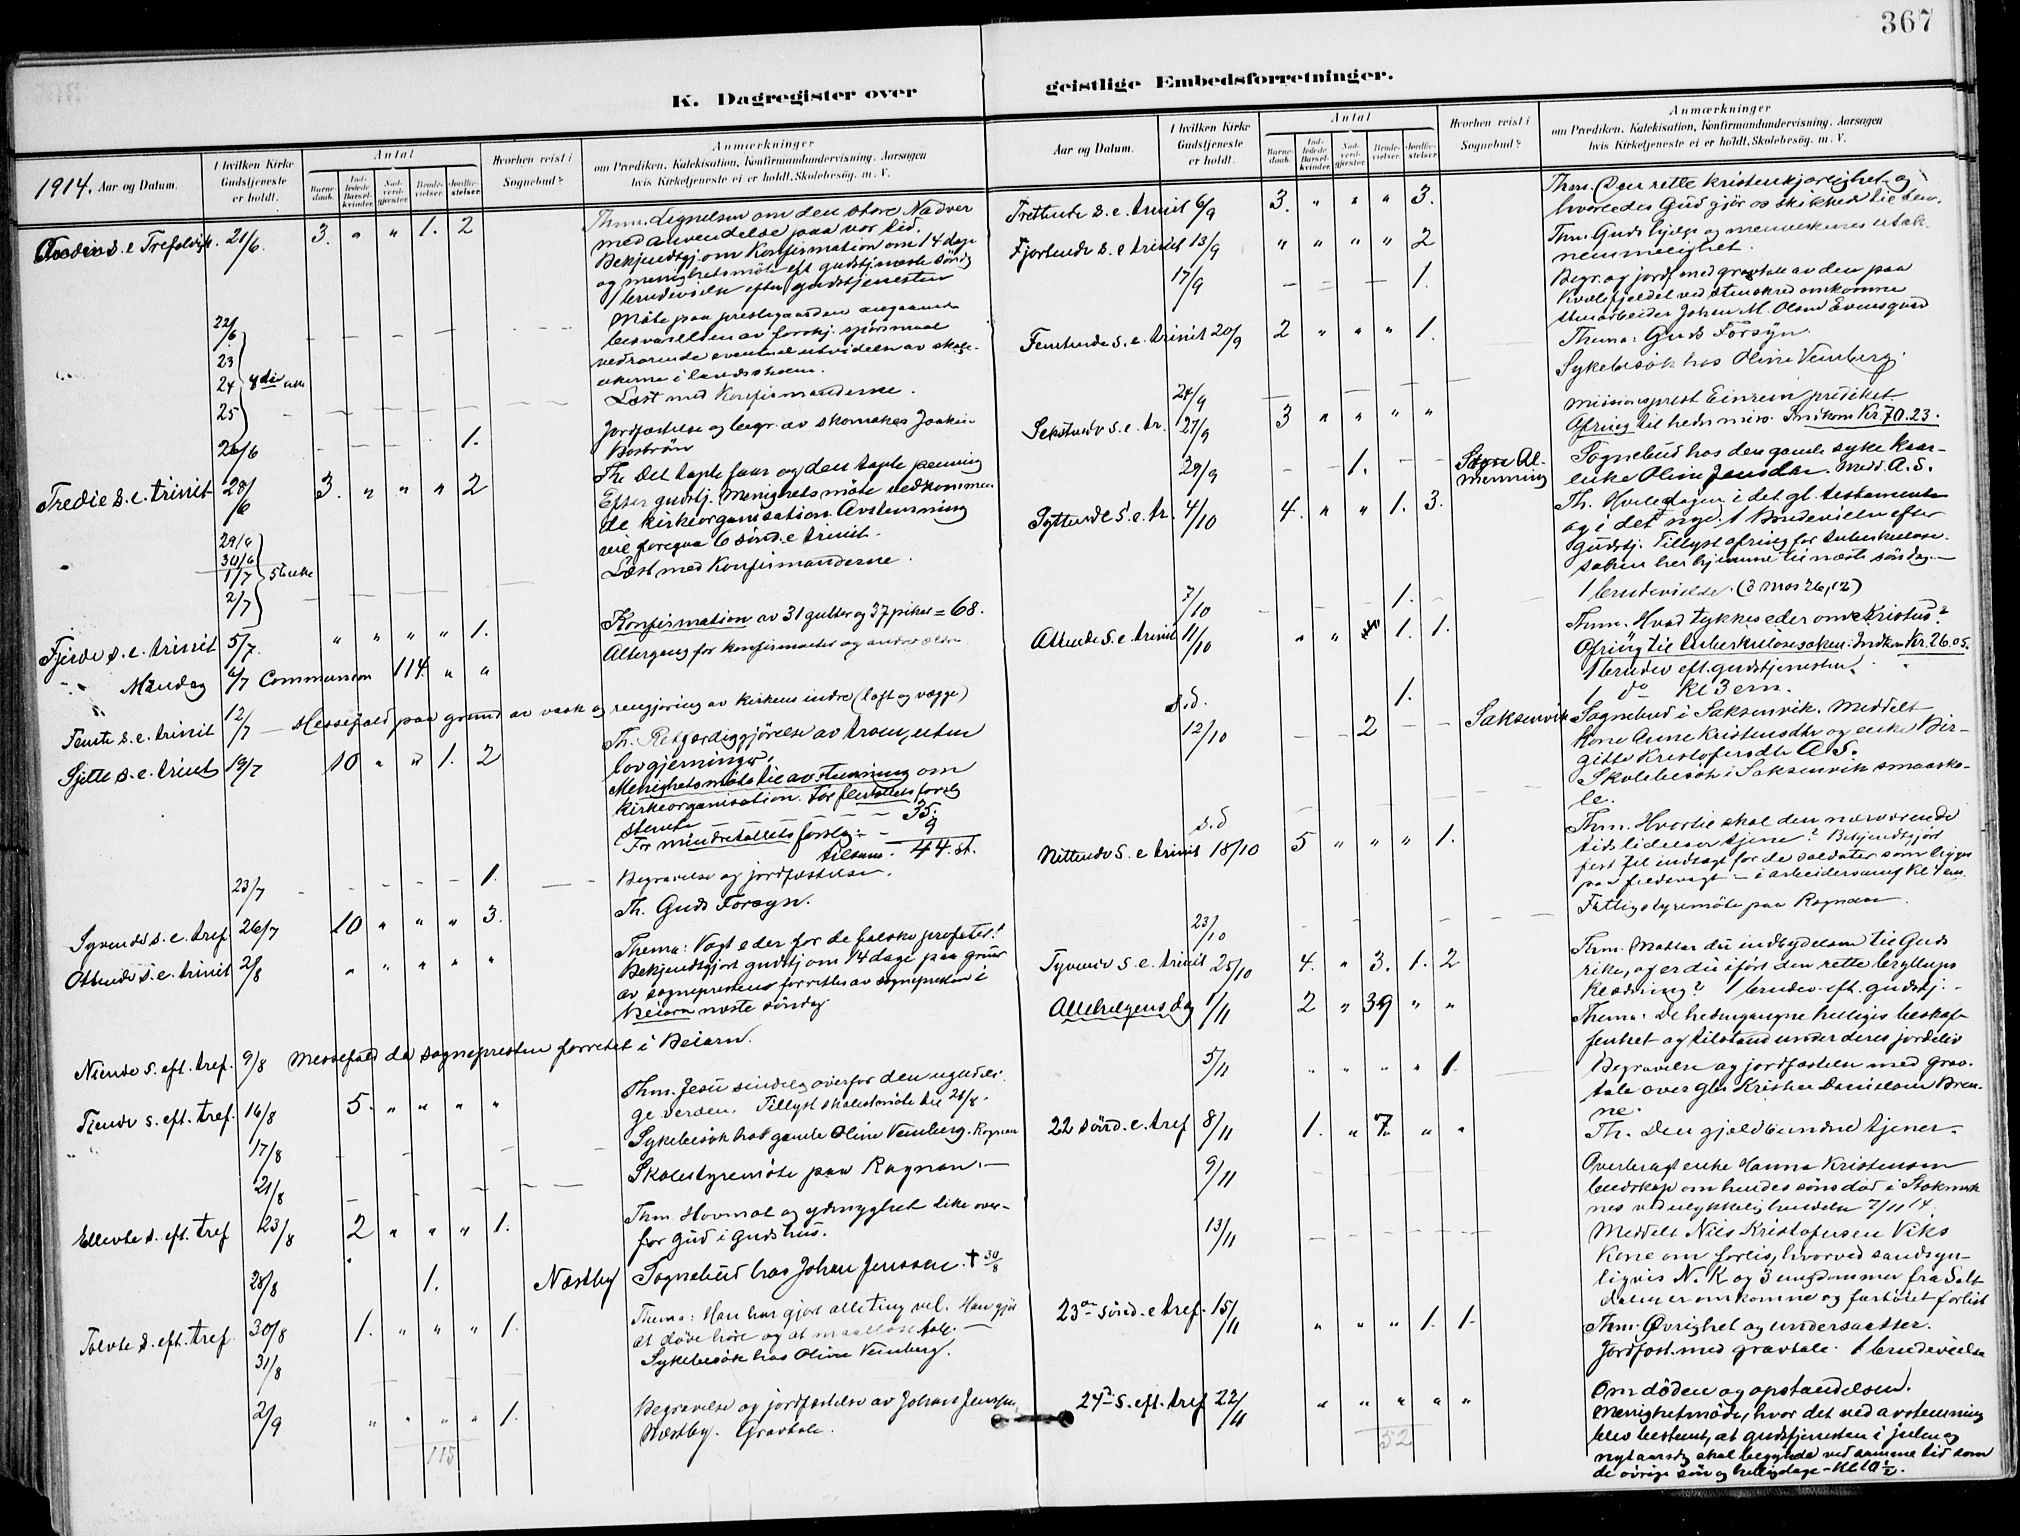 367
K. Dagregister over
geistlige Embedsforretninger.
1914. Aar og Datum.
I hvilken Kirke Gudstjeneste er holdt.
Antal
Barnedaab.
Indledede Barselkvinder.
Nadverdgjester.
Brudevielser.
Jordfæstelser.
Hvorhen reist i Sognebud?
Anmærkninger
om Prædiken, Katekisation, Konfirmandundervisning. Aarsagen
hvis Kirketjeneste ei er holdt. Skolebesög. m. V.
s. e. Trefoldigh. 21/6. 3. „ „ 1. 2
Thm. Lignelsen om den store Nadver
med anvendelse paa vor tid.
Bekjendtgj. om Konfirmation om 14 dage
og menighetsmöte eft gudstjeneste
1 brudevielse efter gudstjenesten
22/6
Möte paa prestegaarden angaaende
besvarelsen av forskj. spörsmaal
vedrörende eventuel utvidelse av skole-
ukerne i landsskolen.
23
24 4de uke
25
Læst med Konfirmanderne.
26/6 1.
Jordfæstelse og begr. av skomaker Joakim
Boström
Tredie s. e. trinit 28/6 3. „ „ „ 2
Th. Det tapte faar og den tapte penning
Efter gudstj. Menighetsmöte vedkommen-
de kirkeorganisation. Avstemning
vil foregaa 6 sönd. e trinit.
29/6
30/6
1/7 5te uke
2/7
Læst med Konfirmanderne.
Fjerde s. e. trinit 5/7. „ „ „ „ 1.
Konfirmation av 31 gutter og 37 piker = 68.
Mandag 6/7 Communion 114. „ „
Altergang for konfirmanter og andre
Femte s. e. trinit 12/7 — Messefald paa grund av vask og rengjöring av kirkens indre (loft og vægge)
Sjette s. e. trinit 19/7 10 „ „ 1. 2
Th. Retfærdiggjörelse av troen, uten
lovgjerninger.
Menighetsmöte til avstemning om
kirkeorganisation. For flertallets forslg
stemte — — 35.
For mindretallets forslag: — 9
tilsam. 44. st.
23/7 1.
Begravelse og jordfæstelse.
Syvende s. e. tref 26/7 10 „ „ „ 3.
Th. Guds Forsyn.
Ottende s. e. trinit 2/8 „ „ „ „ „
Thema: Vogt eder for de falske profeter!
Bekjendtgjort gudstj om 14 dage paa grund
av sogneprestens forrettes av sognepresten i
Beiarn næste söndag
Niende s. eft. tref. 9/8 Messefald da sognepresten forrettet i Beiarn.
Tiende s. eft. tref. 16/8 5. „ „ „ „
Thm. Jesu sindelag overfor den ugudeli-
ge verden. Tillyst skolestmöte til 21/8.
17/8
Sykebesök hos gamle Oline Vemberg. Rognan
21/8
Skolestyremöte paa Rognan. —
Ellevte s. eft. tref 23/8 2 „ „ „ 1.
Thm. Hovmot og ydmyghet like over-
for Gud i Guds hus.
28/8 1. Næstby
Sognebud hos Johan Jenssen. † 30/8
Tolvte s. eft. tref. 30/8 1. „ „ „ 1.
Thema: Han har gjort alle ting vel. Han gjör
at döve höre og at maallöse tale. —
31/8
Sykebesök hos Oline Vemberg.
2/9 „ „ „ „ 1.
Begravelse og jordfæstelse av Johan Jenssen,
Næstby. Gravtale.
115
Aar og Datum.
I hvilken Kirke Gudstjeneste er holdt.
Antal
Barnedaab.
Indledede Barselkvinder.
Nadverdgjester.
Brudevielser.
Jordfæstelser.
Hvorhen reist i Sognebud?
Anmærkninger
om Prædiken, Katekisation, Konfirmandundervisning. Aarsagen
hvis Kirketjeneste ei er holdt. Skolebesög. m. V.
Trettende s. e. trinit 6/9 3. „ „ „ 3.
Thm. Den rette kristenkjærlighet og
hvorledes Gud gjör os skikket til den.
Fjortende s. e. trinit 13/9 „ „ „ „ 2
Thm. Guds hjelp og menneskenes utak-
nemmelighet.
17/9 1.
Begr. og jordf. med gravtale av den paa
Kvælefjeldet ved stenskred omkomne
stenarbeider Johan M. Olsen Evensgaard
Femtende s. e. trinit 20/9 2 „ „ „ 1.
Thema: Guds Forsyn.
Sykebesök hos Oline Vemberg.
24/9
Sekstende s. e. tr. 27/9 3 „ „ „ „
Missionsprest Einrem prediket
Ofring til hednmiss. Indkom Kr 70.23.
29/9 1. Sogn Al-
menning
Sognebud hos den gamle syke kaar-
enke Oline Jensdtr. Medd. A. S.
Syttende s. e. tr. 4/10 4. „ „ 1. 3.
Th. Hviledagen i det gl. testamente
og i det nye. 1 Brudevielse efter
Gudstj. Tillyst ofring for tuberkulose-
saken her hjemme til næste söndag. —
7/10 1.
1 brudevielse. (3 Mos 26,12)
Attende s. e. trinit 11/10 „ „ 1. 1.
Thm. Hvad tykkes eder om Kristus?
Ofring til tuberkulosesaken. Indkom Kr. 26.05.
1 brudev eft. gudstjenesten.
s.d. 1.
1 do kl 3 em.
12/10 2 Saksenvik
Sognebud i Saksenvik. Meddelt
Kone Anne Kristensdtr og enke Bir-
gitte Kristofersdtr A. S.
s.d
Skolebesök i Saksenvik smaasko-
le.
Nittende s. e trinit 18/10 5 „ „ „ 1.
Thm. Hvortil skal den nærværende
tids lidelser tjene? Bekjendtgjört
fest til indtægt for de soldater som ligger
paa feltvagt — i arbeidersamf kl 4 em.
23/10
Fattigstyremöte paa Rognan.
Tyvende s. e. trinit 25/10 4. „ 3. 1. 2
Thm. Mottar du indbydelsen til Guds
rike, og er du iført den rette bryllups-
klædning? 1 brudev. eft. gudstj. —
Allehelgensdag 1/11 2 „ 39 „ „
Thema: De hedengangne helliges beskaf-
fenhet og tilstand under deres jordeliv
5/11 „ „ „ „ 1.
Begravelse og jordfæstelse med grav-
tale over Kristian Danielsen Bren-
ne.
22 sönd. e. tref 8/11 1. „ 7. „ „
Th. Den gjældbundne tjener.
9/11
Overbragt enke Hanna Kristensen
budskap om hendes söns död i Stokmark-
nes ved ulykkelig hendelse 7/11 14.
13/11
Meddelt Nils Kristofersen Viks
kone om forlis, hvorved sandsyn-
ligvis N. K og 3 ungdommer fra Salt-
dalen er omkomne og fartöiet forlist
23de sönd. e tref. 15/11 „ „ „ 1. 1.
Thm. Øvrighet og undersaatter.
Jordfæst. med gravtale. 1 brudevielse
24de s. eft. tref 22/11 „ „ „ „ „
Om döden og opstandelsen.
Menighetsmöde, hvor det ved avstemning
blev bestemt, at gudstjenesten i julen og
nytaarsdg skal begynde ved samme tid som
de övrige sön og helligdage — Kl 10 1/2.
52